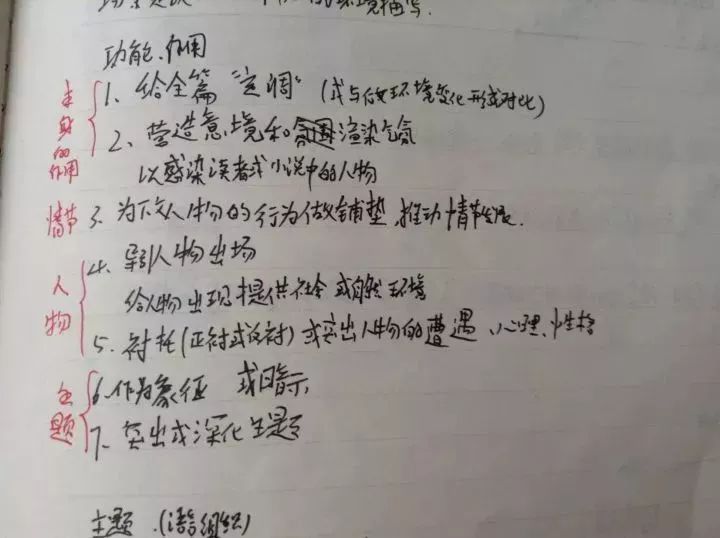 环境描写.
功能、作用
本身的作用
1、给全篇"定调"（或与后文环境变化形成对比）
2、营造意境和渲染气氛
以感染读者或小说中的人物
情节
3、为下文人物的行为做铺垫,推动情节发展.
人物
4、引人物出场
给人物出现提供社会或自然环境
5、衬托(正衬或反衬)或突出人物的遭遇、心理、性格
主题
6.作为象征 或暗示
7、突出或深化主题
主题.(语言组织)